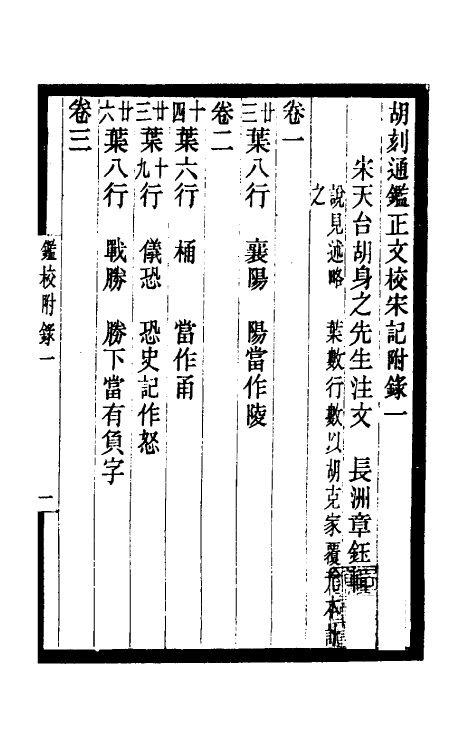 胡刻通鑑正文校宋記附錄一
宋天台胡身之先生注文　長洲章鈺輯
說見述略　葉數行數以胡克家覆元本計
之
卷一
廿三葉八行　襄陽　陽當作陵
卷二
十四葉六行　桶　當作甬
廿三葉十九行　儀恐　恐史記作怒
廿六葉八行　戰勝　勝下當有負字
卷三
鑑校附錄一